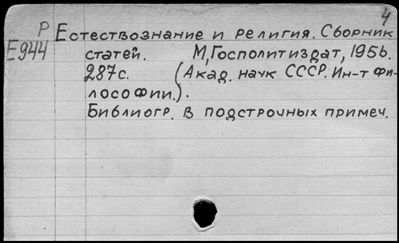 4
Р Естествознание и религия. Сборник
Е944 статей. М, Госполитиздат, 1956.
287с. (Акад. наук СССР. Ин-т фи-
лософии.).
Библиогр. в подстрочных примеч.